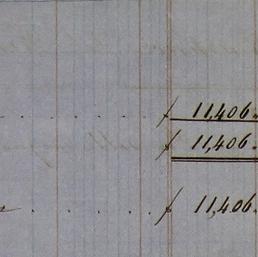 11,406.
11,406.
11,406.